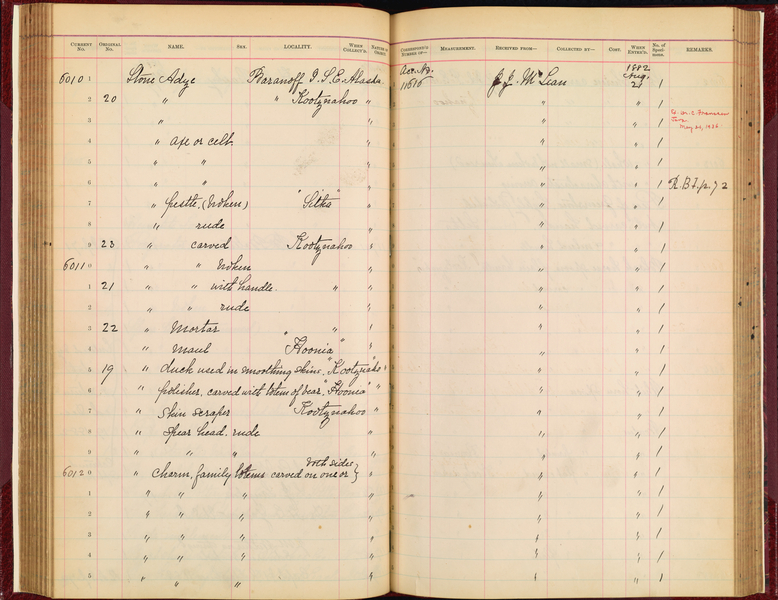 CURRENT No. ORIGINAL No. NAME. SEX. LOCALITY. WHEN COLLECT'D. NATURE OF OBJECT. CORRESPOND'G NUMBER OF— MEASUREMENT. RECEIVED FROM— COLLECTED BY— COST. WHEN ENTER'D. No. of Speci- mens. REMARKS.
6010 1 Stone Adze Baranoff I. S. E. Alaska Acc. No. 11616 J. J. McLean 1882 Aug. 21 1
2 20 " " Kootznahoo " " " 1
3 " " " " 1 May 24, 1926
4 " axe or celt " " " 1
5 " " " " " 1
6 " " " " " 1 R. B. I. p. 72
7 " pestle. (Broken) " Sitka " " " " 1
8 " " rude " " " 1
9 23 " " carved Kootznahoo " " " 1
6011 0 " " Broken " " " 1
1 21 " " with handle. " " " " 1
2 " " rude " " " 1
3 22 " Mortar " " " " " 1
4 " Maul " Hoonia " " " " 1
5 19 " duck used in smoothing skins. " Kootznaho " " " 1
6 " polisher, carved with totem of bear " Hoonia " " " " 1
7 " skin scraper Kootznahoo " " " 1
8 " spear head. rude " " " 1
9 " " " " " " 1
both sides
6012 0 " Charm, family totems carved on one or } " " " 1
1 " " " " " " 1
2 " " " " " " 1
3 " " " " " " 1
4 " " " " " " 1
5 " " " " " " 1